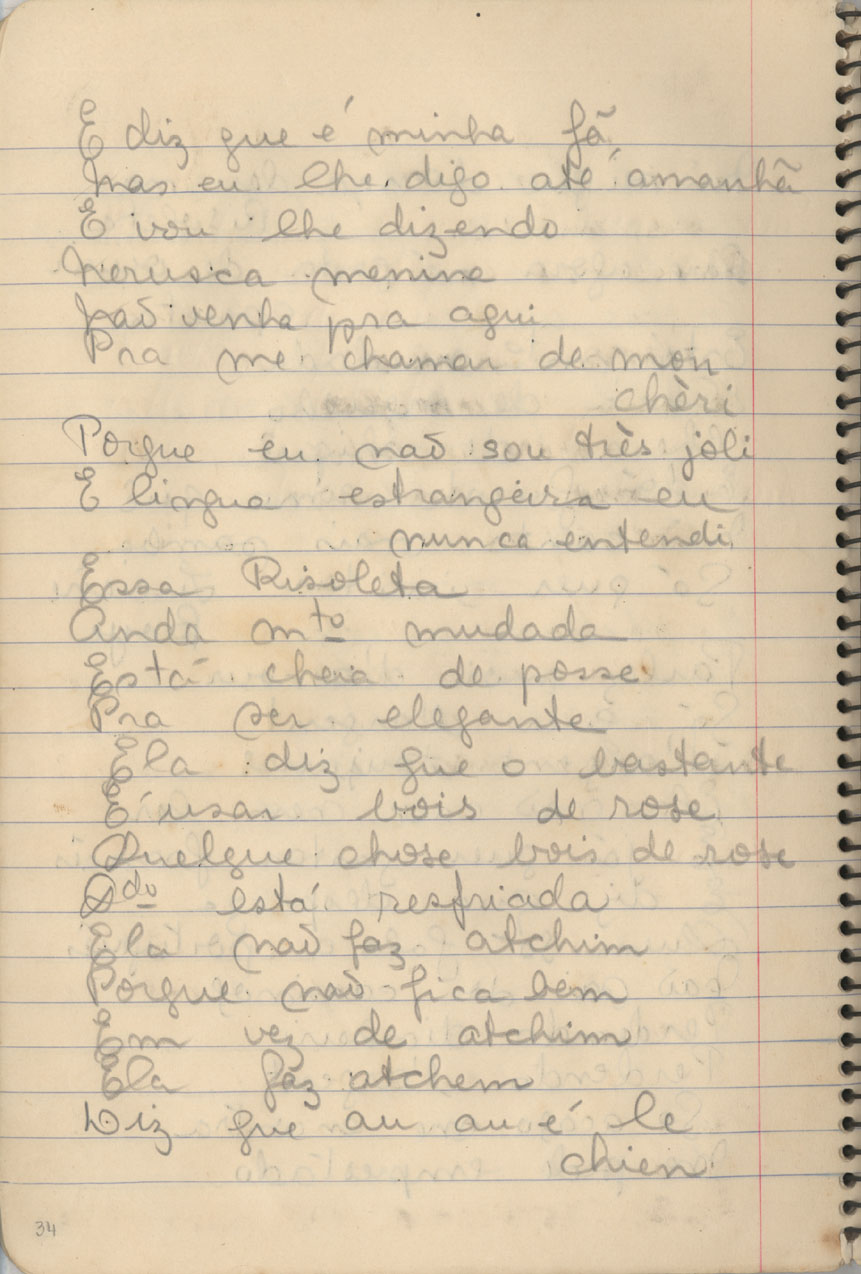 E diz que é minha fã
Mas eu lhe digo até amanhã
E vou lhe dizendo
Nerusca menina
Não venha pra aqui
Pra me chamar de mon
chèri
Porque eu não sou très joli
E lingua estrangeira eu
nunca entendi
Essa Risoleta
Anda mto mudada
Está cheia de posse
Pra ser elegante
Ela diz que o bastante
É usar bois de rose
Quelque chose bois de rose
Qdo está resfriada
Ela não faz atchim
Porque não fica bem
Em vez de atchim
Ela faz atchem
Diz que au au é le
chien
34